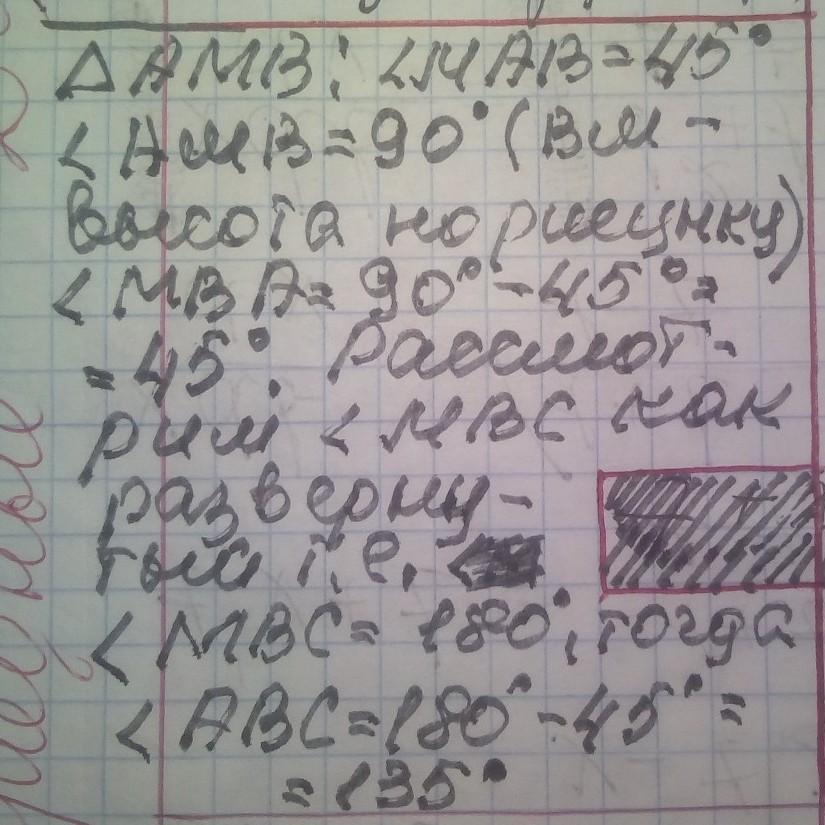 △ AMB: <MAB=45°
<AMB=90° (BM-
высота по рисунку)
<MBA=90°-45°=
=45°. Рассмот-
рим <MBC как
разверну-
тый т.е.
<MBC=180°, тогда
<ABC=180°-45°=
=135°